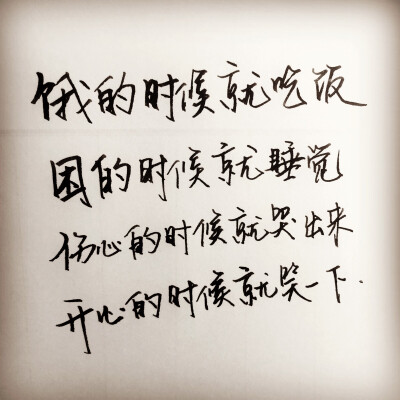 饿的时候就吃饭
困的时候就睡觉
伤心的时候就哭出来
开心的时候就笑一下.